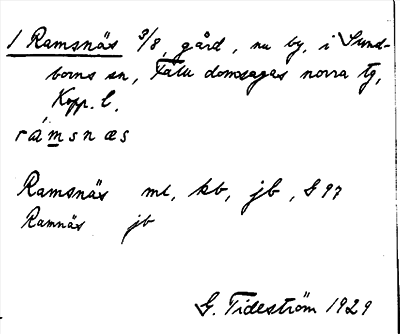 1 Ramsnäs 3/8, gård, nu by, i Sund-
borns sn, Falu domsagas norra tg,
Kopp. l.
rámsnæs
Ramsnäs ml, kb, jb, G 97
Ramnäs jb
G. Tideström 1929